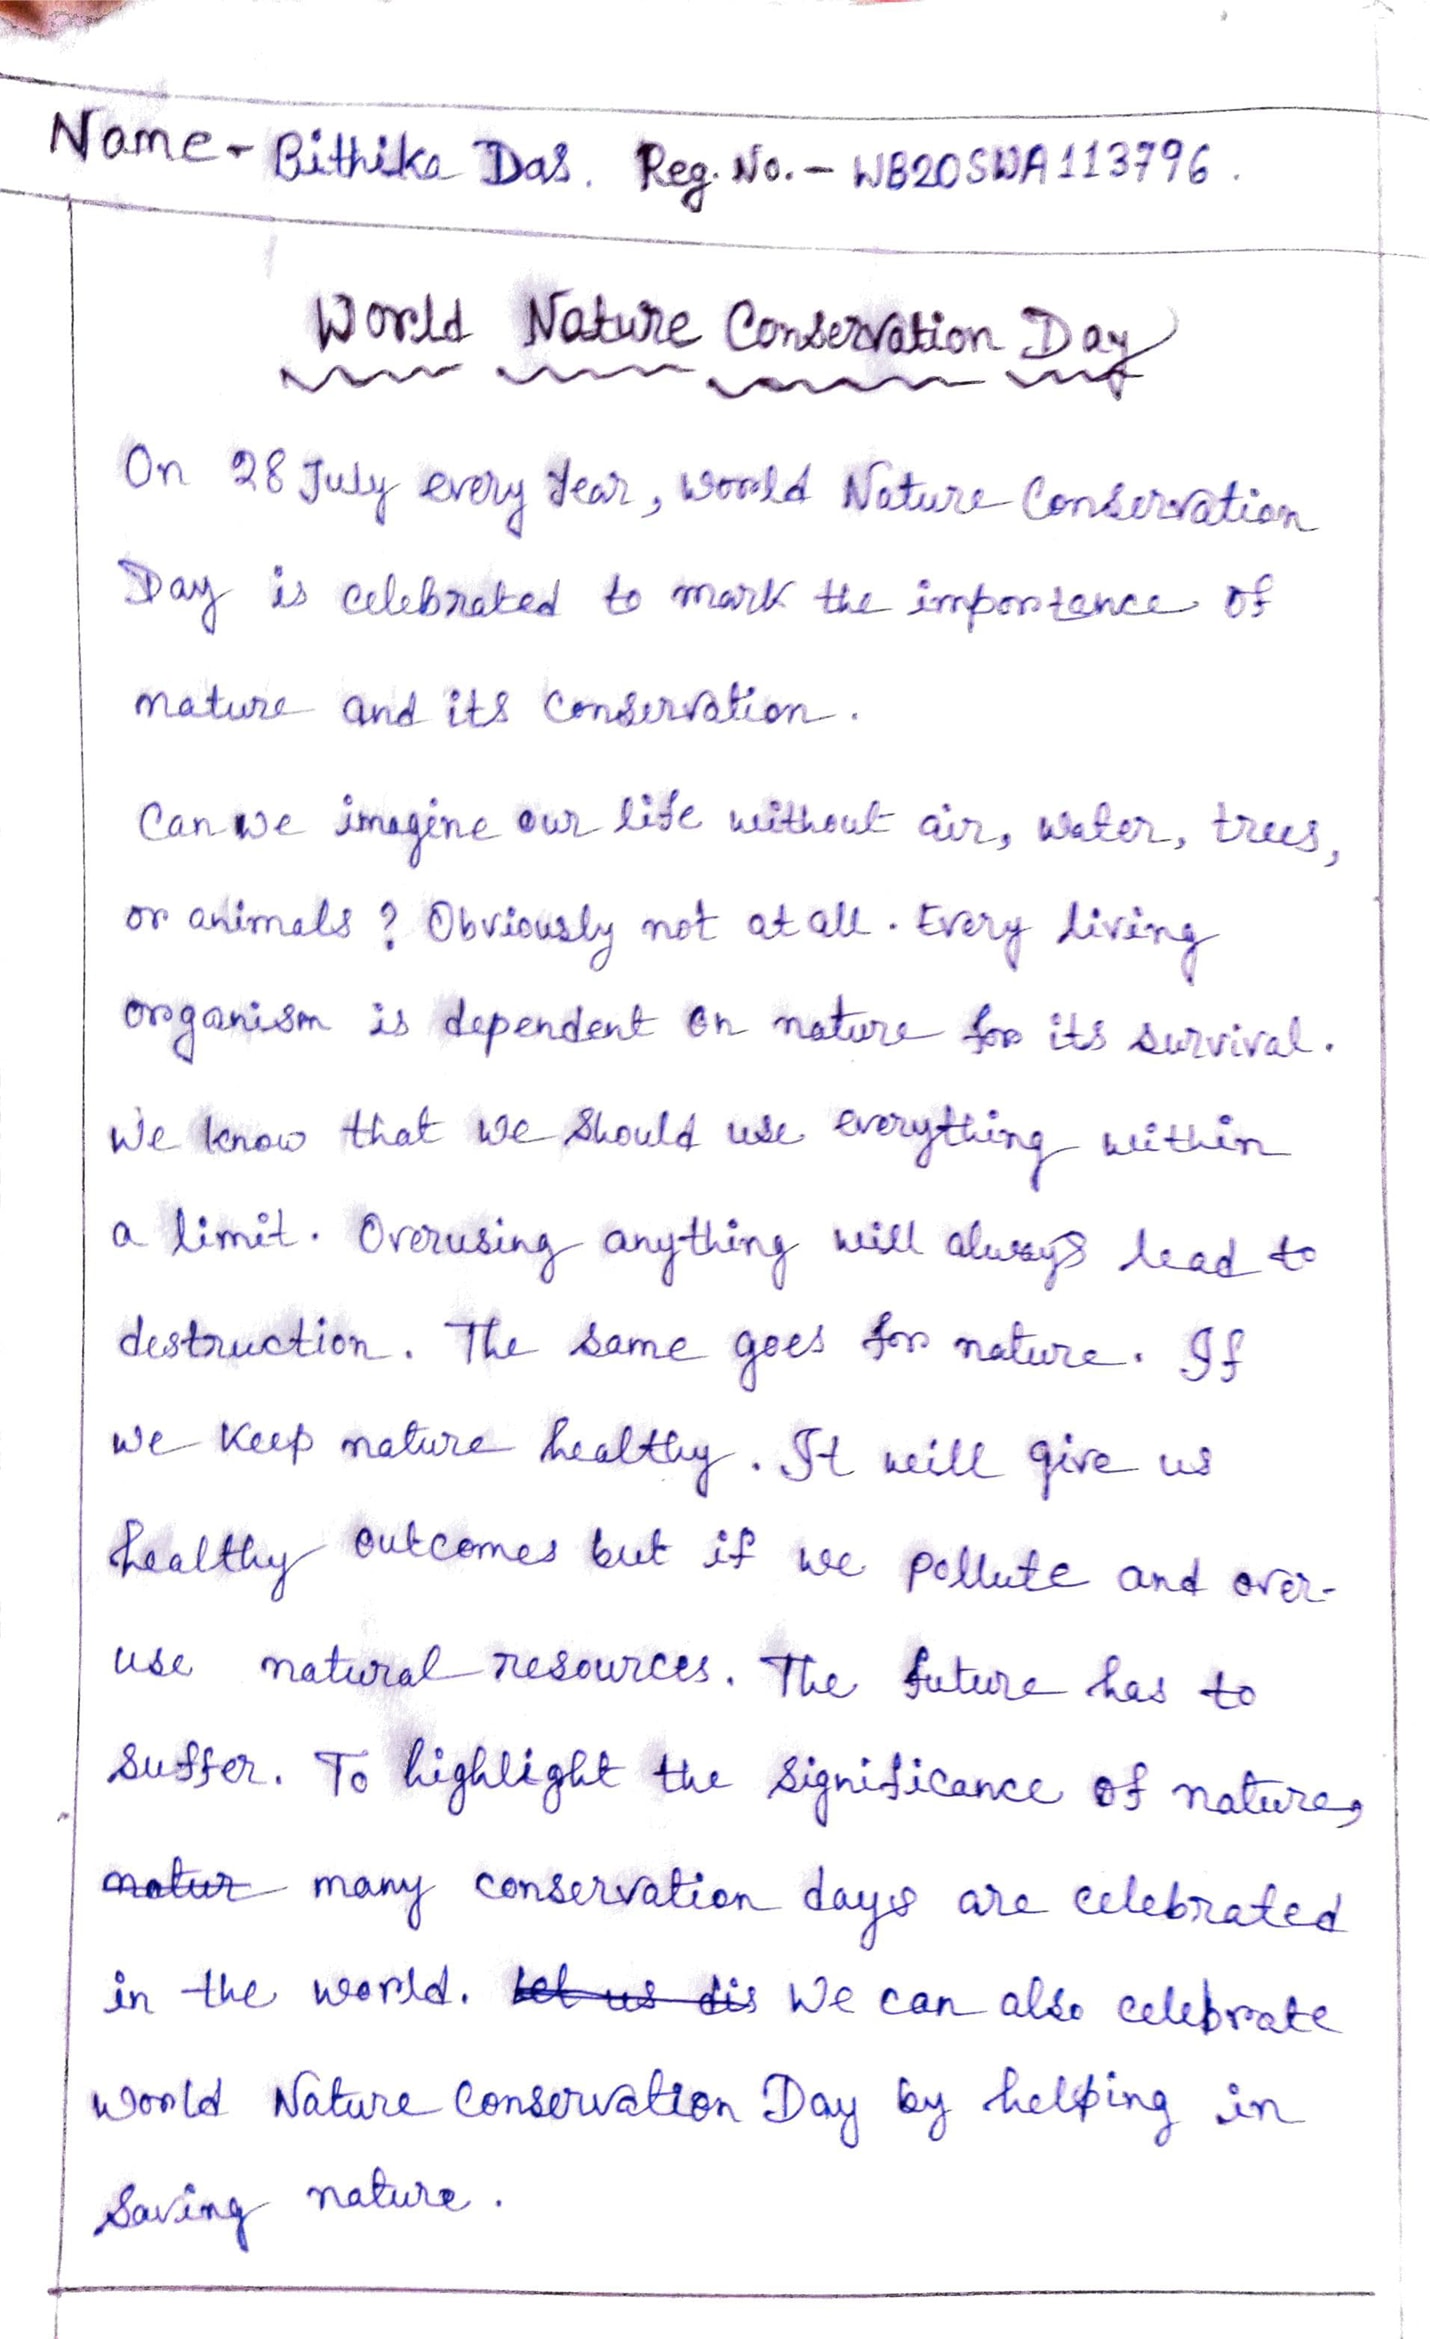 Name - Bithika Das. Reg. No. - WB20SWA113796.
World Nature Conservation Day
On 28 July every Year, World Nature Conservation
Day is celebrated to mark the importance of
nature and its conservation.
Can we imagine our life without air, water, trees,
or animals? Obviously not at all. Every living
organism is dependent on nature for its survival.
We know that we should use everything within
a limit. Overusing anything will always lead to
destruction. The same goes for nature. If
we keep nature healthy. It will give us
healthy outcomes but if we pollute and over-
use natural resources. The future has to
suffer. To highlight the significance of nature,
natur many conservation days are celebrated
in the world. Let us dis We can also celebrate
World Nature Conservation Day by helping in
saving nature.